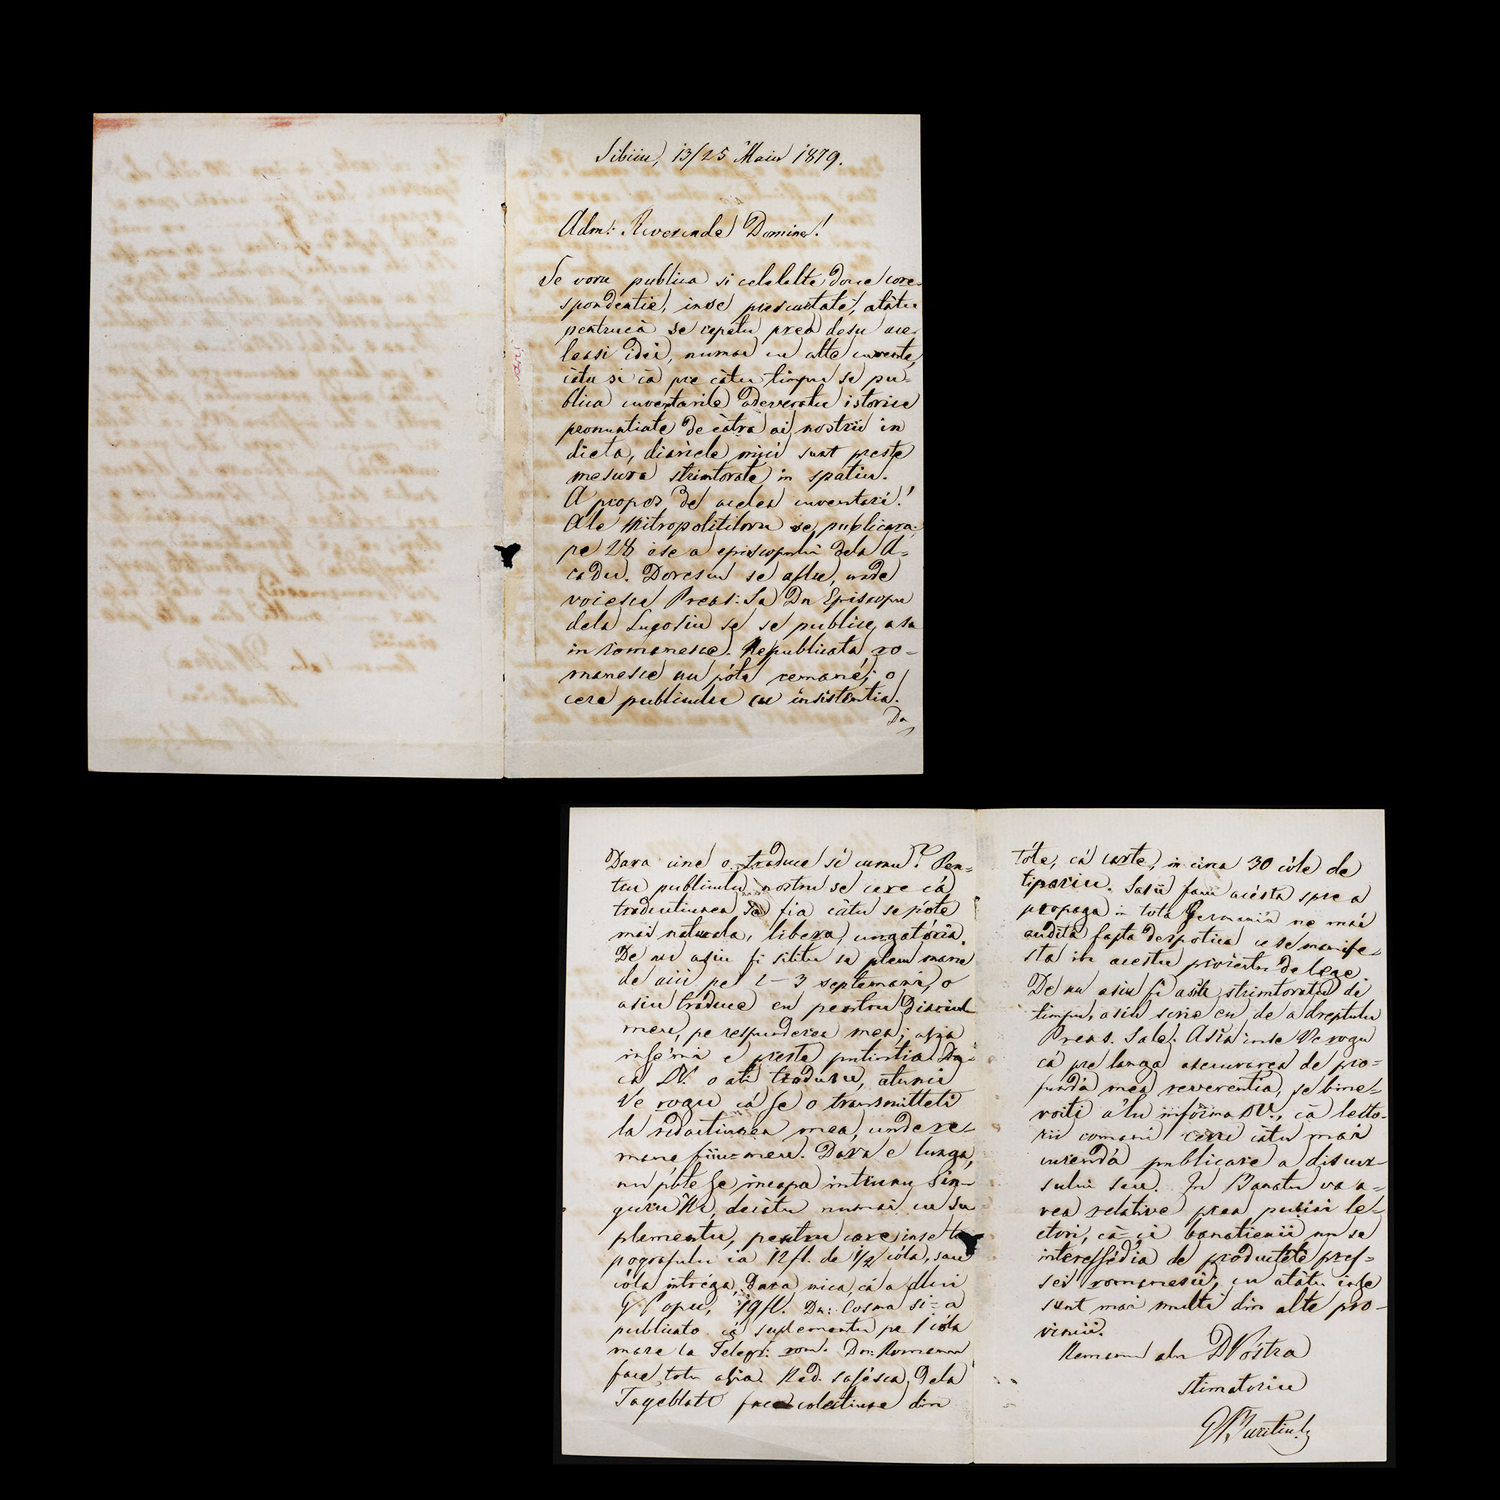 Sibiiu, 13/25 Maiu 1879.
Adm: Reverende Domine!
Se voru publica si celelalte doue core-
spondentie, inse prescurtate, atâtu
pentrucà se repetu prea desu ace-
leasi idei, numai cu alte cuvente,
câtu si cà pre câtu timpu se pu-
blica cuventarile adeveratu istorice
pronuntiate de cátra ai nostrii in
dieta, diariele mici sunt preste
mesura strimtorate in spatiu.
A propos de acelea cuventari!
Ale Mitropolitiloru se publicara
pe 28 ese a episcopului dela A-
radu. Doresiu se aflu, unde
voiesce Preas: Sa Dn Episcopu
dela Lugosiu se se publice a sa
in romanesce. Nepublicata ro-
manesce nu pôte remané; o
cere publiculu cu insistentia.
Da
Dara cine o traduce si cumu? Pen-
tru publiculu nostru se cere cá
traductiunea se fia câtu se pôte
mai naturala, libera,
De nu asiu fi silitu sa plecu mane
de aici pe 2-3 septemani, o
asiu traduce eu pentru Diariulu
meu, pe respunderea mea; asia
inse mi e preste putintia. Da-
ca DV. o ati traduce, atunci
Ve rogu cá se o transmitteti
la redactiunea mea, unde re-
mane fiiu-meu. Dara e lunga,
nu pôte se incapa intrunu sin-
guru Nr, decâtu numai cu su
plementu, pentru care inse ti
pografulu ia 12 fl. de 1/2 côla, sau
côla intréga, dara mica, cá a dlui
G Popu, 19 fl. Dn: Cosma si-a
publicato cá suplementu pe 1 côla
mare la Telegr. rom. Dn: Romanu
face totu asia. Red. sasésca dela
Tageblatt face colectiune din
tôte, cá carte, in circa 30 côle de
tipariu. Sasii facu acésta spre a
propaga in tota Germania ne mai
audita fapta despotica ce se manife-
sta in acestu proiectu de lege.
De nu asiu fi asia strimtoratu de
timpu, asiu scrie eu de a dreptulu
Preas. Sale. Asia inse Ve rogu
cá pe langa asecurarea de pro-
funda mea reverentia, se bine-
voiti a'lu informa DV., ca lecto-
rii romani ceru câtu mai
curenda publicare a discur-
sului seu. In Banatu va a-
vea relative prea putini le-
ctori, cà-ci banatienii nu se
interessédia de productele pres-
sei romanesci, cu atâtu inse
sunt mai multi din alte pro-
vincii.
Remanu alu DVostra
stimatoriu
G Baritiu